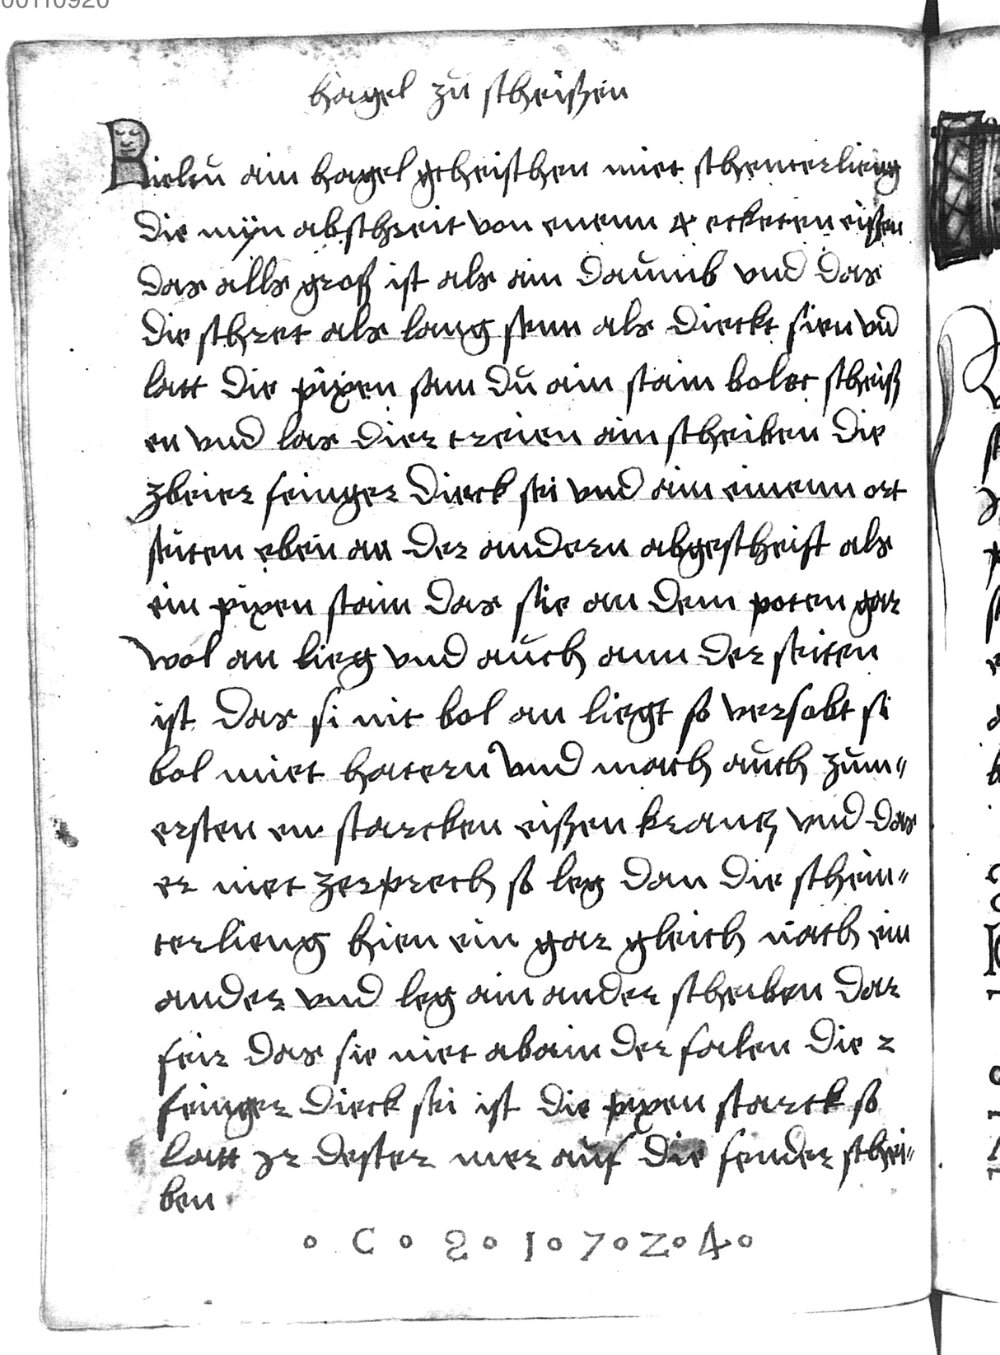 00110920
hagel zu scheißen
Bieltu ain hagel gcheischen miet schenterlieng
die myn abschreit von enenn 4 ecketen eißen
das alls groß ist als ain daumb vnd das
die schret als lang senn als dieckt sien vnd
latt die pixen sam du ain stain bolet scheiß
en vnd las dier treien ain scheiben die
zbeier feinger dieck sei vnd ain einenn ort
seiten eben an der andern abgescheift als
ein pixen stain das sie an dem poten gar
wol an lieg vnd auch ann der seiten
ist das si nit bol an liegt so versabt si
bol miet hatern vnd mach auch zum„
ersten ein starcken eißen krantz vnd das
er niet zerprech so leg dan die schein„
terlieng hien ein gar gleich nach ein
ander vnd leg ain ander scheiben dar
feir das sie niet abain der falen die 2
feinger dieck sei ist die pixen starck so
latt ir dester mer auf die fender schei„
ben
° C ° 8 ° 1 ° 7 ° 2 ° 4 °